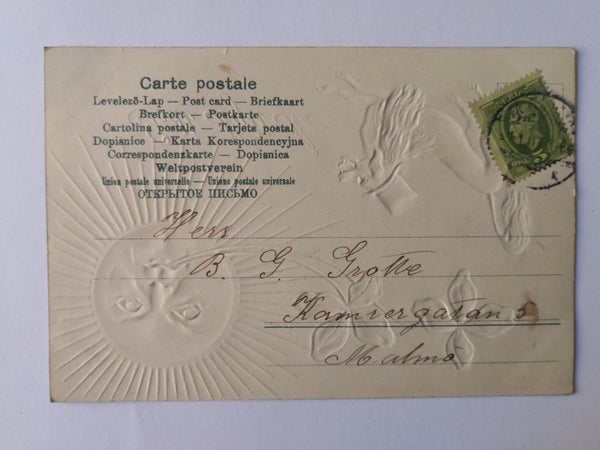 Carte postale
Levelező-Lap — Post card — Briefkaart
Brefkort — Postkarte
Cartolina postale — Tarjeta postal
Dopisnice — Karta Korespondencyjna
Correspondenzkarte — Dopisnica
Weltpostverein
Union postale universelle — Unione postale universale
ОТКРЫТОЕ ПИСЬМО
Herr
B. G. Grotte
Kamrergatan 5
Malmö